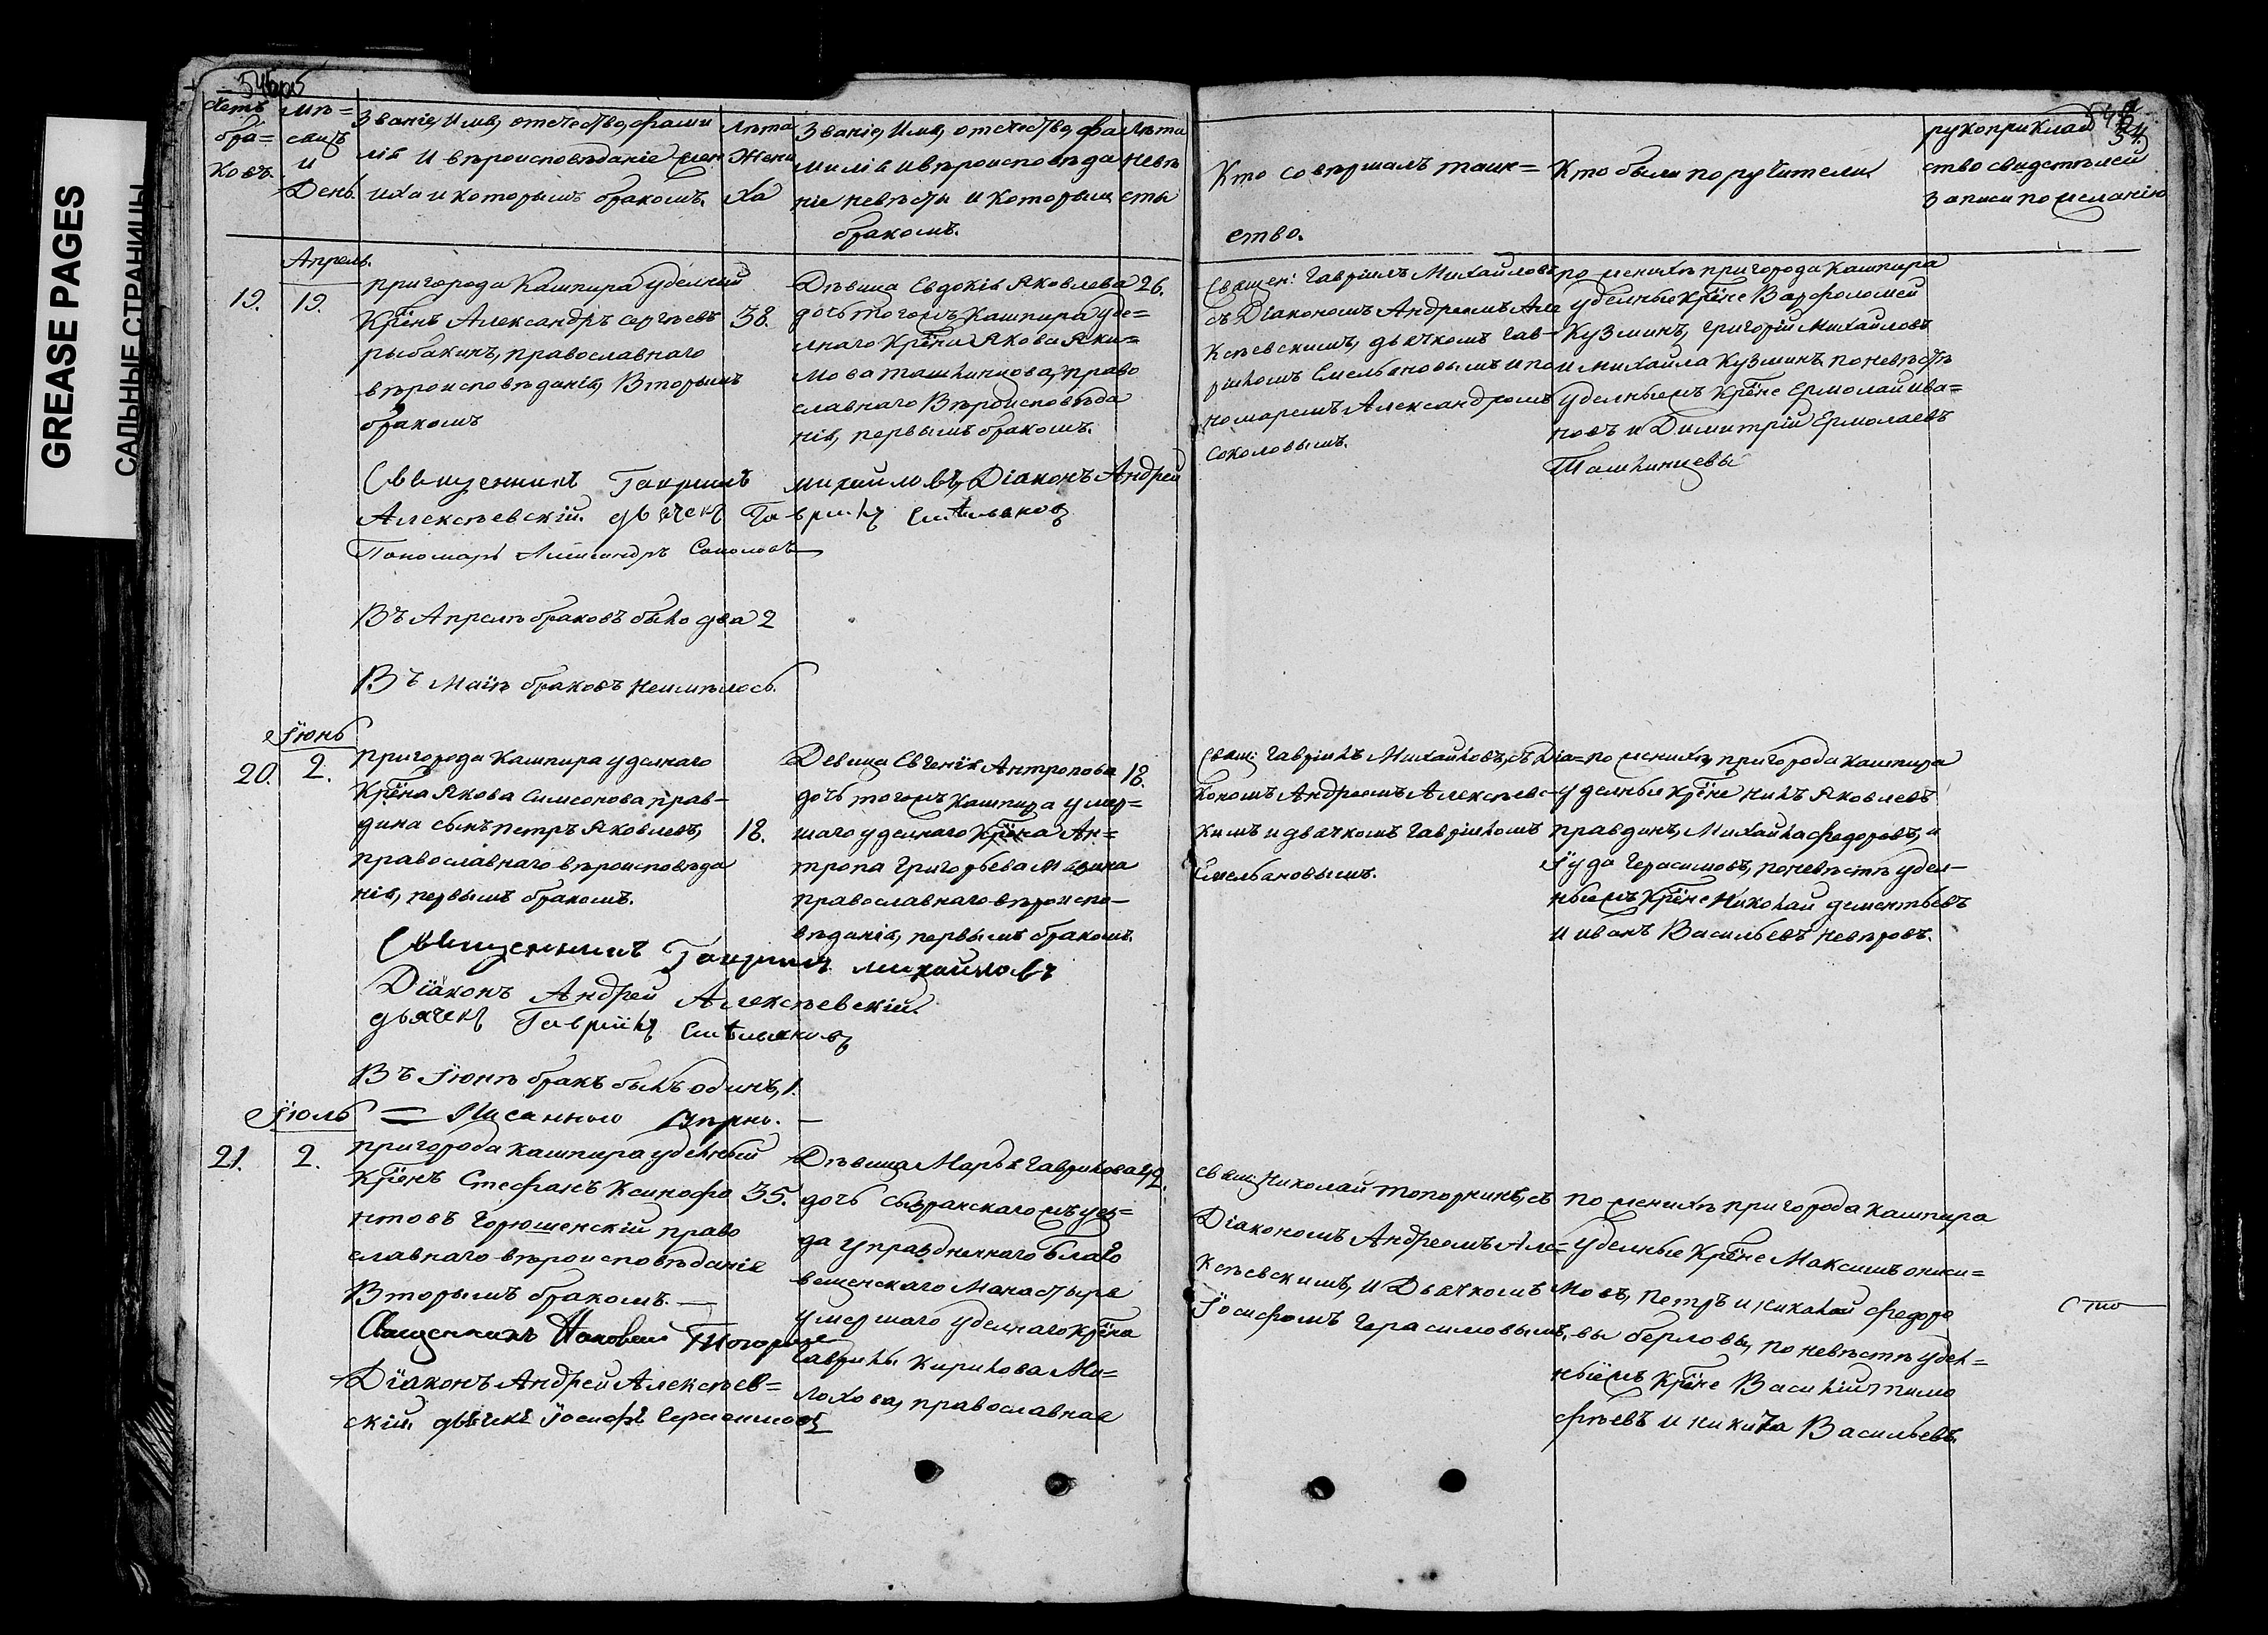 GREASE PAGES
САЛЬНЫЕ СТРАНИЦЫ
Счетъ бра=
ковъ
Мѣ=
сяцъ
и
День.
Званіе, Имя, отечество, фами
лія и вѣроисповѣданіе жен
иха и которымъ бракомъ.
Лѣта
Жени
ха
Званіе, Имя, отечество, фа
милія и вѣроисповѣда
ніе невѣсты и которымъ
бракомъ.
Лѣта
невѣ
сты
Кто совершалъ таин=
ство.
Кто были поручители
рукоприклад
ство свидетѣлей
записи по желанію
Апрель.
19.
19.
пригорода Кашпира уделный
Кр̃нъ Александръ Сергѣевъ
рыбакинъ, православнаго
вѣроисповѣданія, Вторымъ
бракомъ
38.
Дѣвица Евдокія Яковлева
дочь тогожъ Кашпира уде=
лнаго Кр̃на Якова Яки=
мова Ташлинцова, право
славнаго Вѣроисповѣда
нія, первымъ бракомъ.
26.
Священ: Гавріилъ Михайловъ
съ Діакономъ Андреемъ Але
ксѣевскимъ, дьячкомъ Гав-
рииломъ Емельяновымъ и по
номаремъ Александромъ
Соколовымъ.
по женихѣ пригорода Кашпира
уделные Кр̃не Варфоломей
Кузминъ, Григорій Михайловъ
и Михайла Кузминъ, по невѣстѣ
уделныежъ Кр̃не Ермолай Ива=
новъ и Димитрій Ермолаевъ
Ташлинцевы
Священникъ Гавриилъ Михайловъ, Діаконъ Андрей
Алексѣевскій. дьячекъ Гавриилъ Емельяновъ
Пономарь Александръ Соколовъ
Въ Апрелѣ браковъ было два 2
Въ Маіѣ браковъ неимѣлось.
Іюнь
20.
2.
пригорода Кашпира уделнаго
Кр̃на Якова Симеонова прав-
дина сынъ Петръ Яковлевъ,
православнаго вѣроисповѣда
нія, первымъ бракомъ.
18.
Девица Евгенія Антропова
дочь тогожъ Кашпира умер=
шаго уделнаго Кр̃на Ан=
тропа Григорьева
православнаго вѣроиспо-
вѣданія, первымъ бракомъ.
18.
Свящ: Гавріилъ Михайловъ, съ Діа=
кономъ Андреемъ Алексѣевс-
кимъ и дьячкомъ Гавріиломъ
Емельяновымъ.
по женихѣ пригорода Кашпира
уделные Кр̃не Нилъ Яковлевъ
правдинъ, Михайла Федоровъ, и
Іуда Герасимовъ, по невѣстѣ удел-
ныежъ Кр̃не Николай Дементьевъ
и Иванъ Васильевъ Невѣровъ.
Священникъ Гавриилъ Михайловъ
Діаконъ Андрей Алексѣевскій.
дьячекъ Гавріилъ Емельяновъ
Въ Іюнѣ бракъ былъ одинъ, 1.
Іюль
Писанного Вѣрно.
21.
2.
пригорода Кашпира уделный
Кр̃нъ Стефанъ Ксинофо
нтовъ Горюшенскій право
славнаго вѣроисповѣданія
Вторымъ бракомъ.
35.
Дѣвица Марья Гаврилова
дочь Сызранскаго уез=
да упраздненнаго Благо
вещенскаго Манастыря
умершаго уделнаго Кр̃на
Гаврилы Кирилова Ми=
лохова, православнае
42.
свящ: Николай Топорнинъ, съ
Діакономъ Андреемъ Але=
ксѣевскимъ, и Дьячкомъ
Іосифомъ Герасимовымъ.
по женихѣ пригорода Кашпира
уделные Кр̃не Максимъ Ониси=
мовъ, Петръ и Николай Федоро
вы Берловы, по невѣстѣ удел=
ныежъ Кр̃не Василій Тимо
фѣевъ и Никита Васильевъ.
Священникъ Николай
Діаконъ Андрей Алексѣев=
скій. дьячекъ Іосифъ Герасимовъ